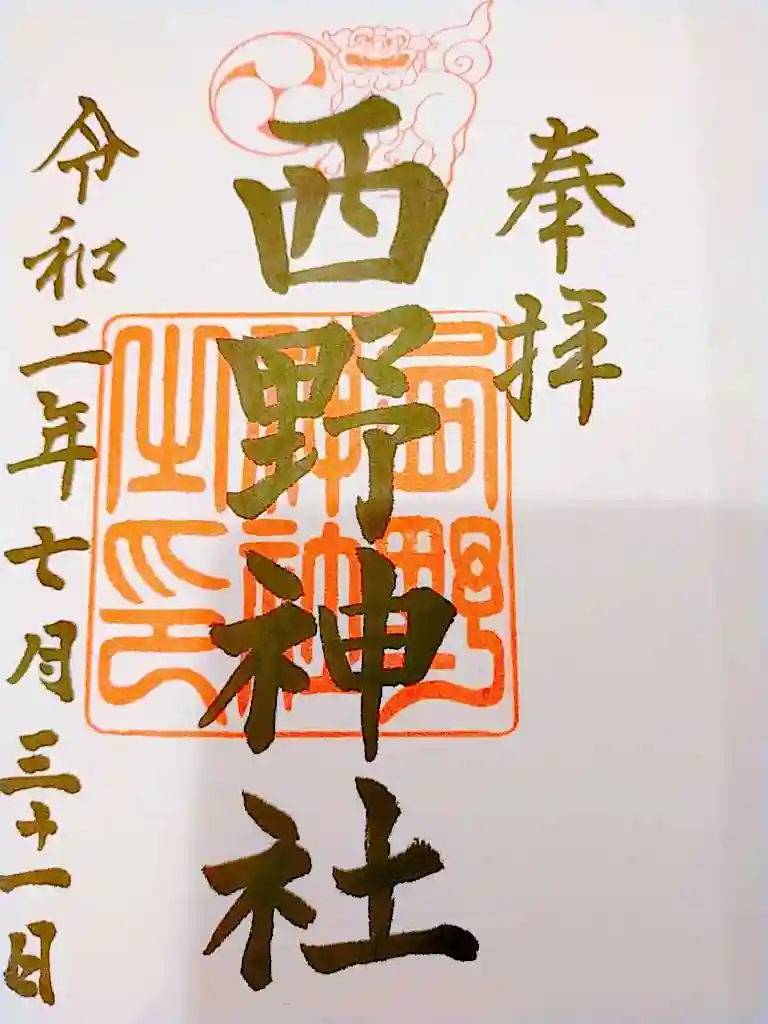 奉拝
西野神社
西野神社之印
令和二年七月三十一日